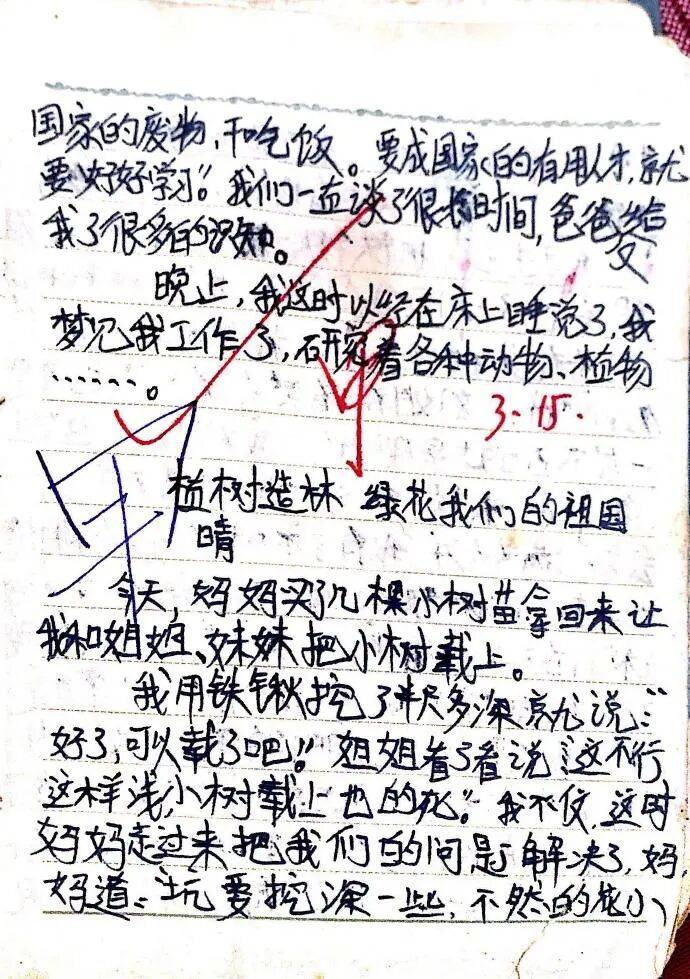 国家的废物,干吃饭。要成国家的有用人才,就
要好好学习。”我们一直谈了很长时间,爸爸给
我了很多的识知。
晚上,我这时以经在床上睡说了,我
梦见我工作了,研究着各种动物、植物
……。
3.15.
植树造林 绿花我们的祖国
晴
今天,妈妈买了几棵小树苗拿回来让
我和姐姐、妹妹把小树载上。
我用铁锹挖了半尺多深就说:“
好了,可以载了吧!”姐姐看了看说:“这不行,
这样浅,小树载上也的死。”我不仪,这时
妈妈走过来把我们的问是解决了,妈
妈道:“坑要挖深一些,不然的花小